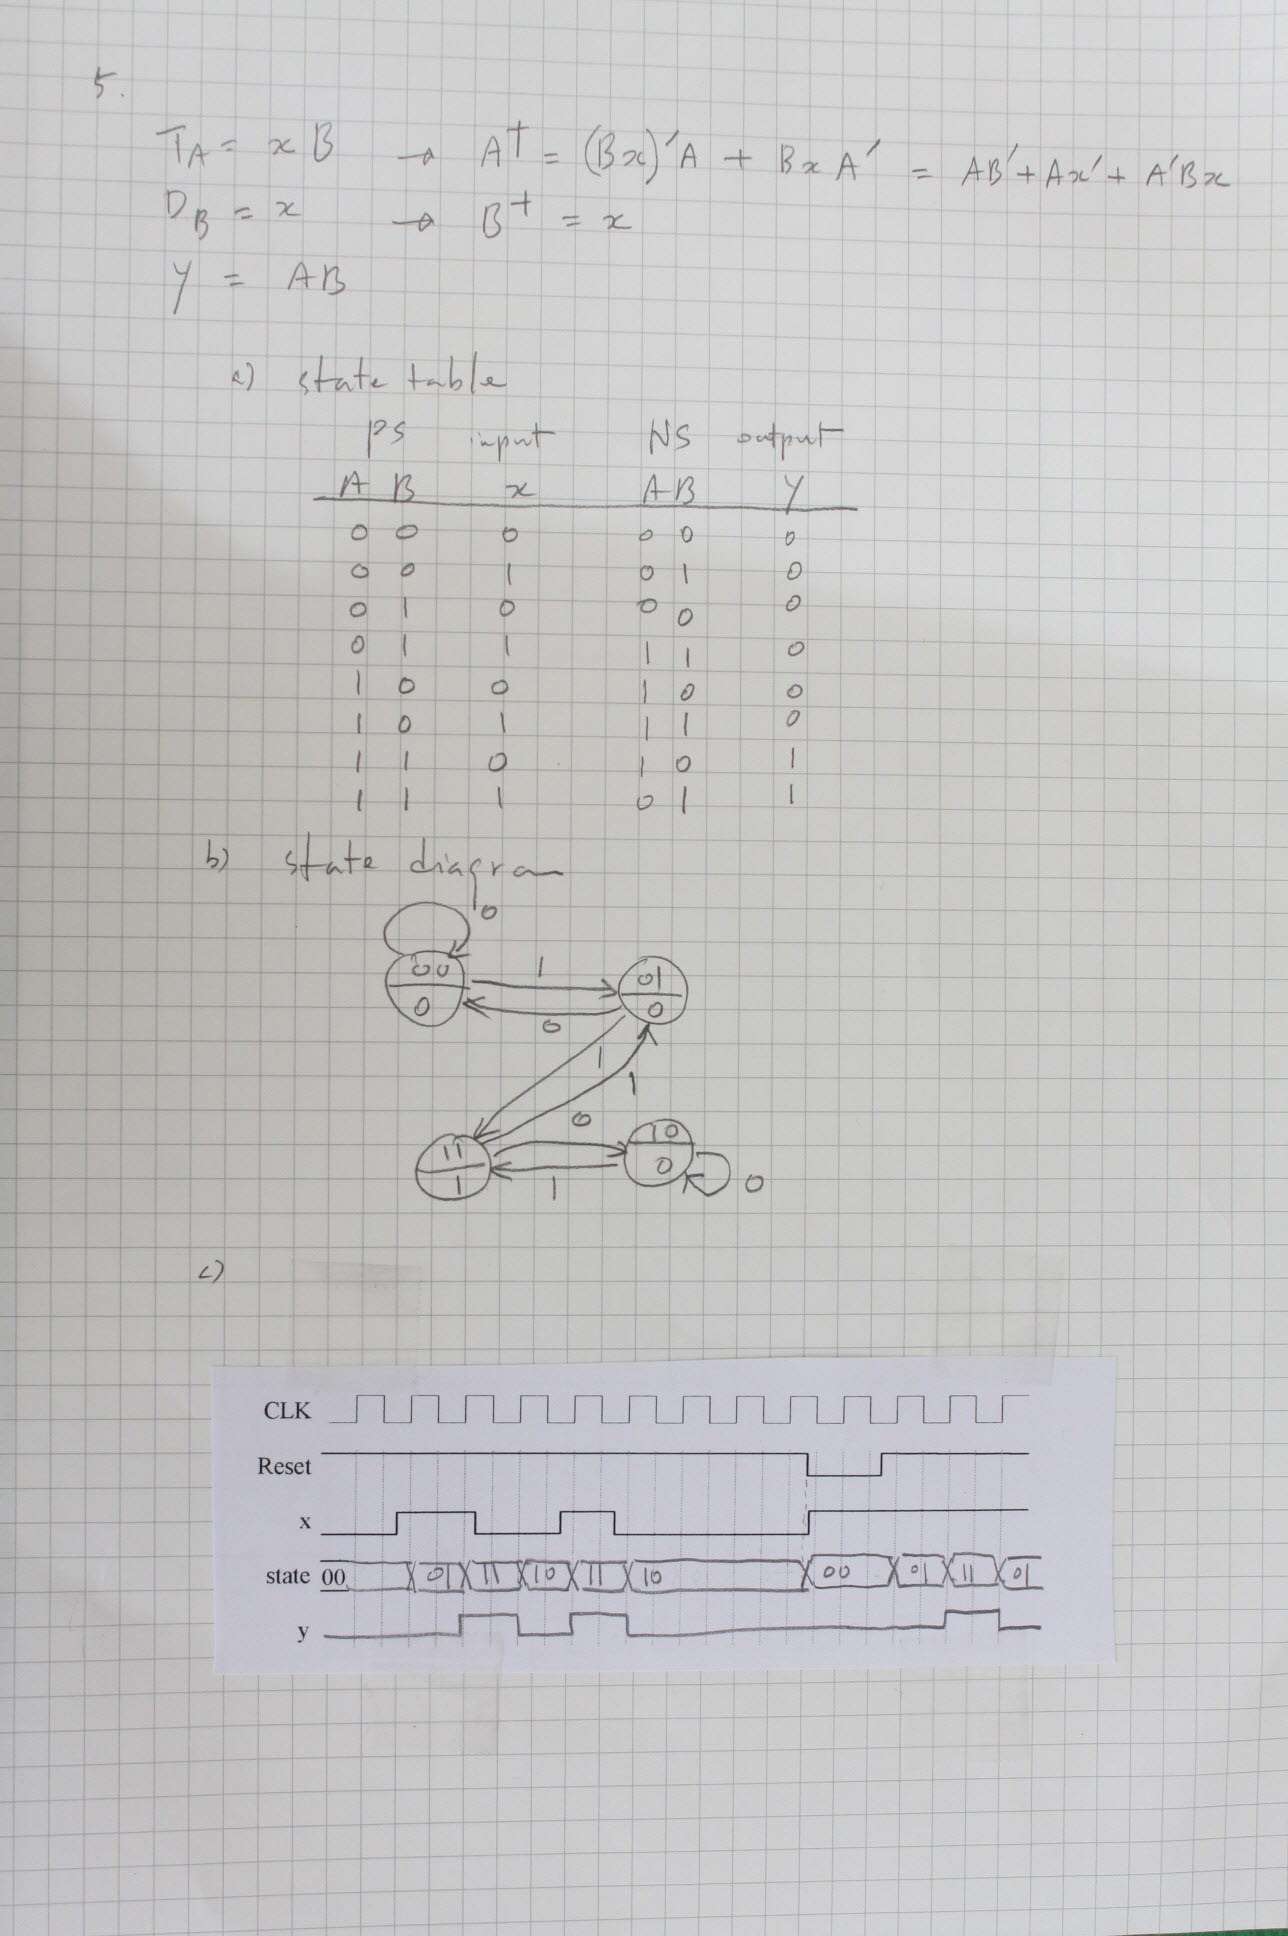 5.
T_A = x B → A⁺ = (Bx)′A + BxA′ = AB′ + Ax′ + A′Bx
D_B = x → B⁺ = x
Y = AB
a) state table
PS input NS output
A B x A B Y
0 0 0 0 0 0
0 0 1 0 1 0
0 1 0 0 0 0
0 1 1 1 1 0
1 0 0 1 0 0
1 0 1 1 1 0
1 1 0 1 0 1
1 1 1 0 1 1
b) state diagram
0
00 1 01
0 0 0
1
1
0
11 10
1 1 0 0
c)
CLK
Reset
x
state 00 01 11 10 11 10 00 01 11 01
y